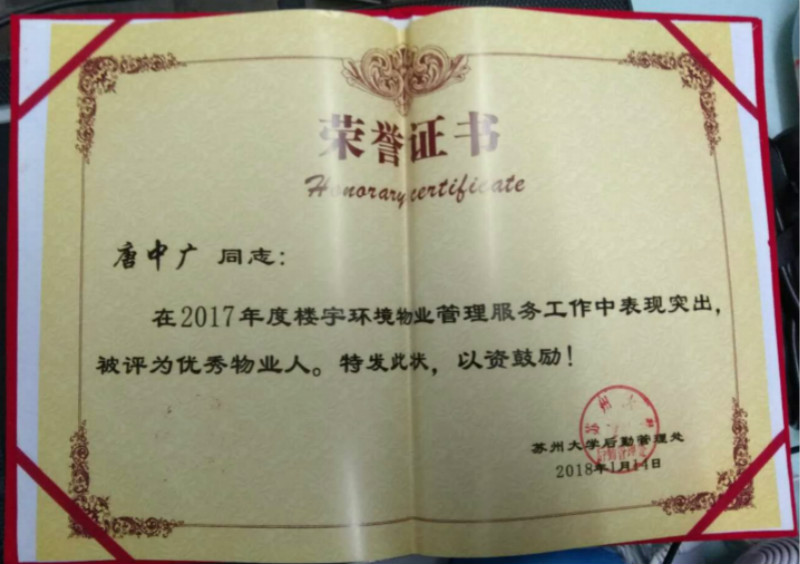 荣誉证书
Honorary certificate
唐中广 同志：
在2017年度楼宇环境物业管理服务工作中表现突出，
被评为优秀物业人。特发此状，以资鼓励！
苏州大学后勤管理处
2018年1月14日